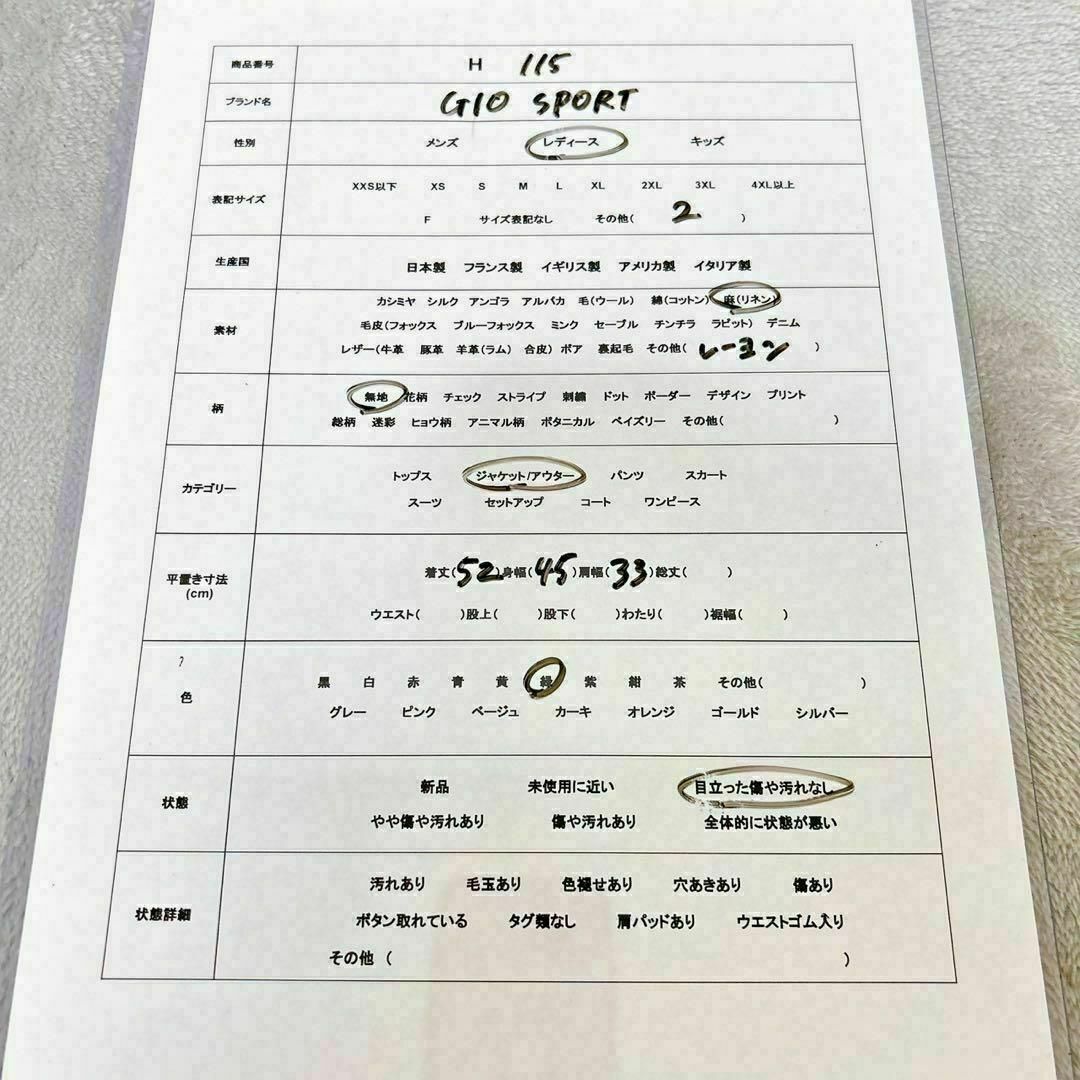 商品番号 H 115
ブランド名 GIO SPORT
性別 メンズ レディース キッズ
XXS以下 XS S M L XL 2XL 3XL 4XL以上
表記サイズ
F サイズ表記なし その他( 2 )
生産国 日本製 フランス製 イギリス製 アメリカ製 イタリア製
カシミヤ シルク アンゴラ アルパカ 毛(ウール) 綿(コットン) 麻(リネン)
素材 毛皮(フォックス ブルーフォックス ミンク セーブル チンチラ ラビット) デニム
レザー(牛革 豚革 羊革(ラム) 合皮) ボア 裏起毛 その他( レーヨン )
柄 無地 花柄 チェック ストライプ 刺繍 ドット ボーダー デザイン プリント
総柄 迷彩 ヒョウ柄 アニマル柄 ボタニカル ペイズリー その他( )
カテゴリー トップス ジャケット/アウター パンツ スカート
スーツ セットアップ コート ワンピース
平置き寸法 (cm) 着丈( 52 )身幅( 45 )肩幅( 33 )総丈( )
ウエスト( )股上( )股下( )わたり( )裾幅( )
色 黒 白 赤 青 黄 緑 紫 紺 茶 その他( )
グレー ピンク ベージュ カーキ オレンジ ゴールド シルバー
状態 新品 未使用に近い 目立った傷や汚れなし
やや傷や汚れあり 傷や汚れあり 全体的に状態が悪い
状態詳細 汚れあり 毛玉あり 色褪せあり 穴あきあり 傷あり
ボタン取れている タグ類なし 肩パッドあり ウエストゴム入り
その他 ( )